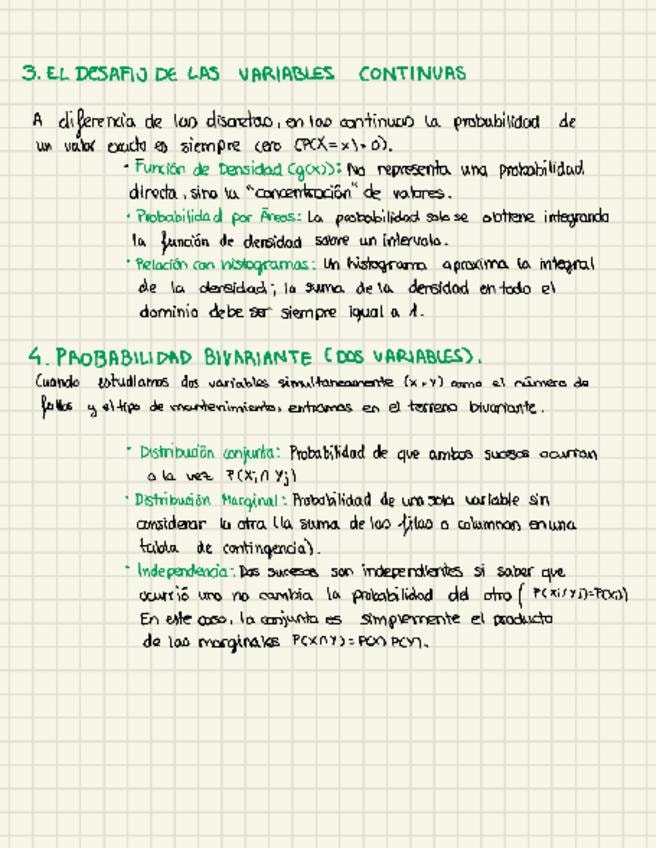 3. EL DESAFIO DE LAS VARIABLES CONTINUAS
A diferencia de las discretas, en las continuas la probabilidad de
un valor exacto es siempre cero (P(X=x)=0).
· Función de Densidad (g(x)): No representa una probabilidad
directa, sino la "concentración" de valores.
· Probabilidad por Áreas: La probabilidad solo se obtiene integrando
la función de densidad sobre un intervalo.
· Relación con histogramas: Un histograma aproxima la integral
de la densidad; la suma de la densidad en todo el
dominio debe ser siempre igual a 1.
4. PROBABILIDAD BIVARIANTE (DOS VARIABLES).
Cuando estudiamos dos variables simultaneamente (x, y) como el número de
fallos y el tipo de mantenimiento, entramos en el terreno bivariante.
· Distribución conjunta: Probabilidad de que ambos sucesos ocurran
a la vez P(Xi∩Yj)
· Distribución Marginal: Probabilidad de una sola variable sin
considerar la otra (la suma de las filas o columnas en una
tabla de contingencia).
· Independencia: Dos sucesos son independientes si saber que
ocurrió uno no cambia la probabilidad del otro (P(Xi/Yj)=P(Xi))
En este caso, la conjunta es simplemente el producto
de las marginales P(X∩Y)=P(X) P(Y).